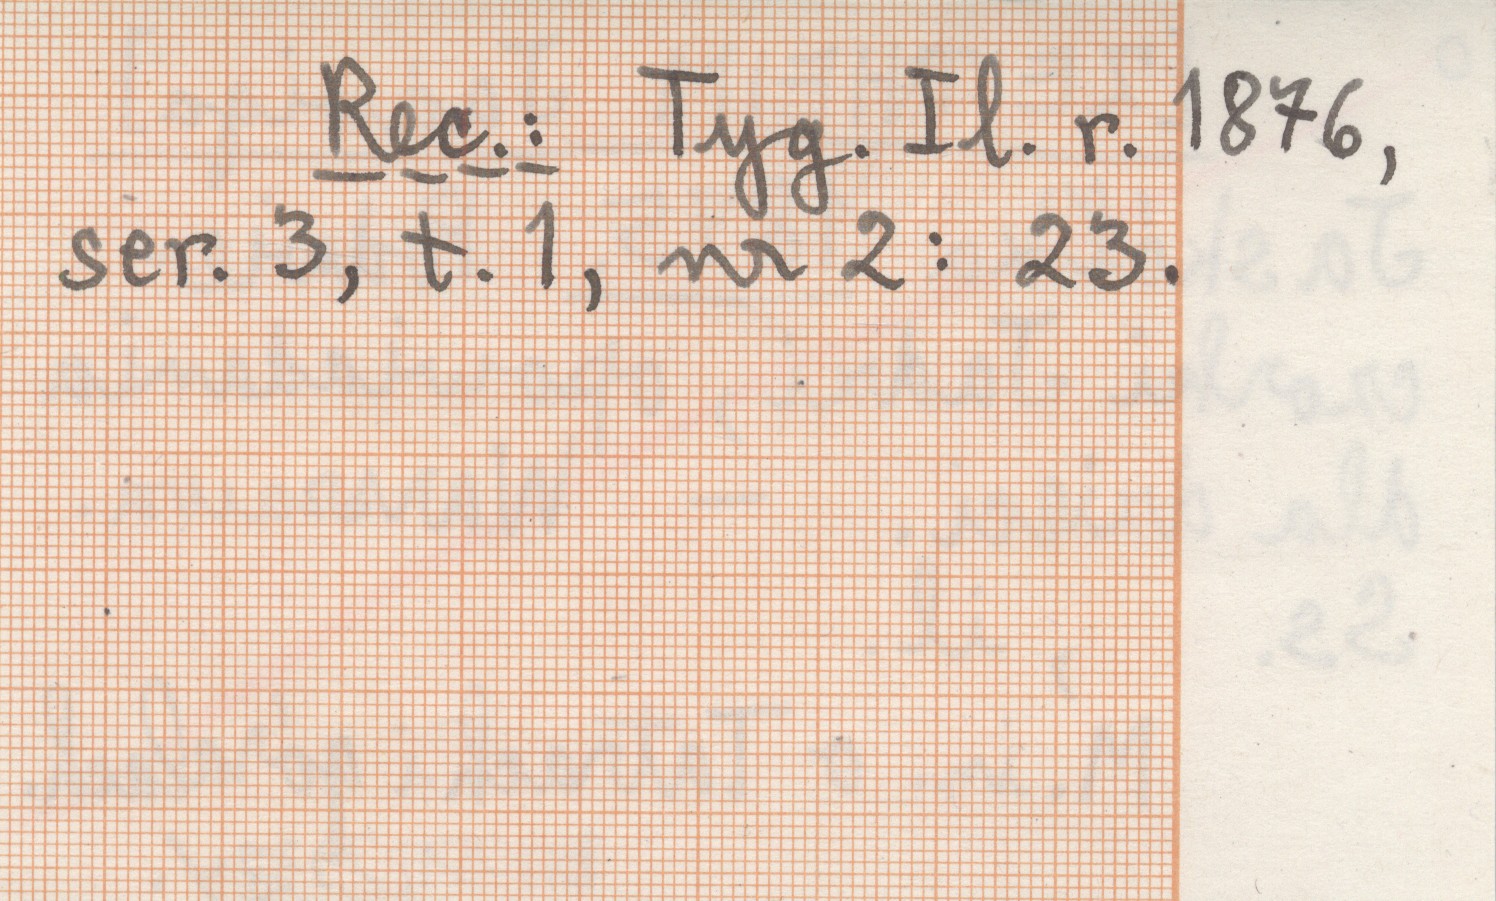 Rec.: Tyg. Il. r. 1876,
ser. 3, t. 1, nr 2: 23.